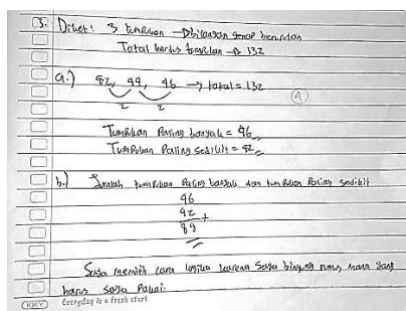 3. Diket: 3 tumpukan → bilangan genap berurutan
Total kardus tumpukan → 132
a.) 42, 44, 46 → total = 132
2 2
4
Tumpukan Paling banyak = 46
Tumpukan Paling sedikit = 42
b.) Jumlah tumpukan Paling banyak dan tumpukan Paling sedikit
46
42 +
89
Saya memilih cara logika karena Saya bingung rumus mana yang
harus saya Pakai.
KIKY Everyday is a fresh start